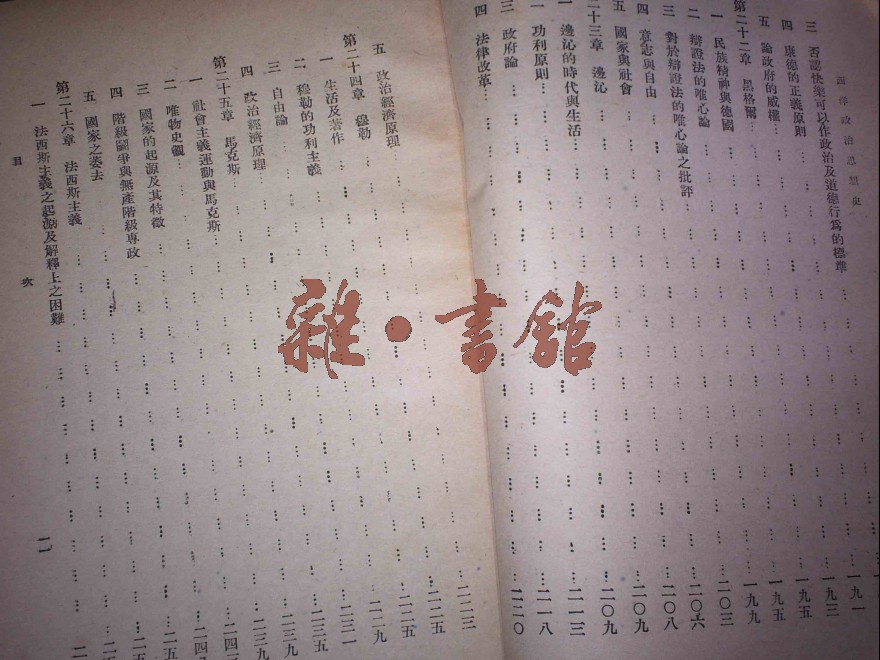 西洋政治思想史
三 否認快樂可以作政治及道德行爲的標準
四 康德的正義原則 一九一
五 論政府的威權 一九三
第二十二章 黑格爾 一九五
一 民族精神與德國 一九五
二 辯證法的唯心論 一九九
三 對於辯證法的唯心論之批評 二〇三
四 意志與自由 二〇六
五 國家與社會 二〇八
二十三章 邊沁 二〇九
一 邊沁的時代與生活 二〇九
功利原則 二一三
三 政府論 二一八
四 法律改革 二二〇
五 政治經濟原理 二二三
第二十四章 穆勒 二二五
一 生活及著作 二二五
二 穆勒的功利主義 二二九
三 自由論 二三一
四 政治經濟原理 二三九
第二十五章 馬克斯 二三九
一 社會主義運動與馬克斯
二 唯物史觀
三 國家的起源及其特徵
四 階級鬪爭與無產階級專政
五 國家之萎去
第二十六章 法西斯主義
一 法西斯主義之起源及解釋上之困難
目次
一一
雜·書館